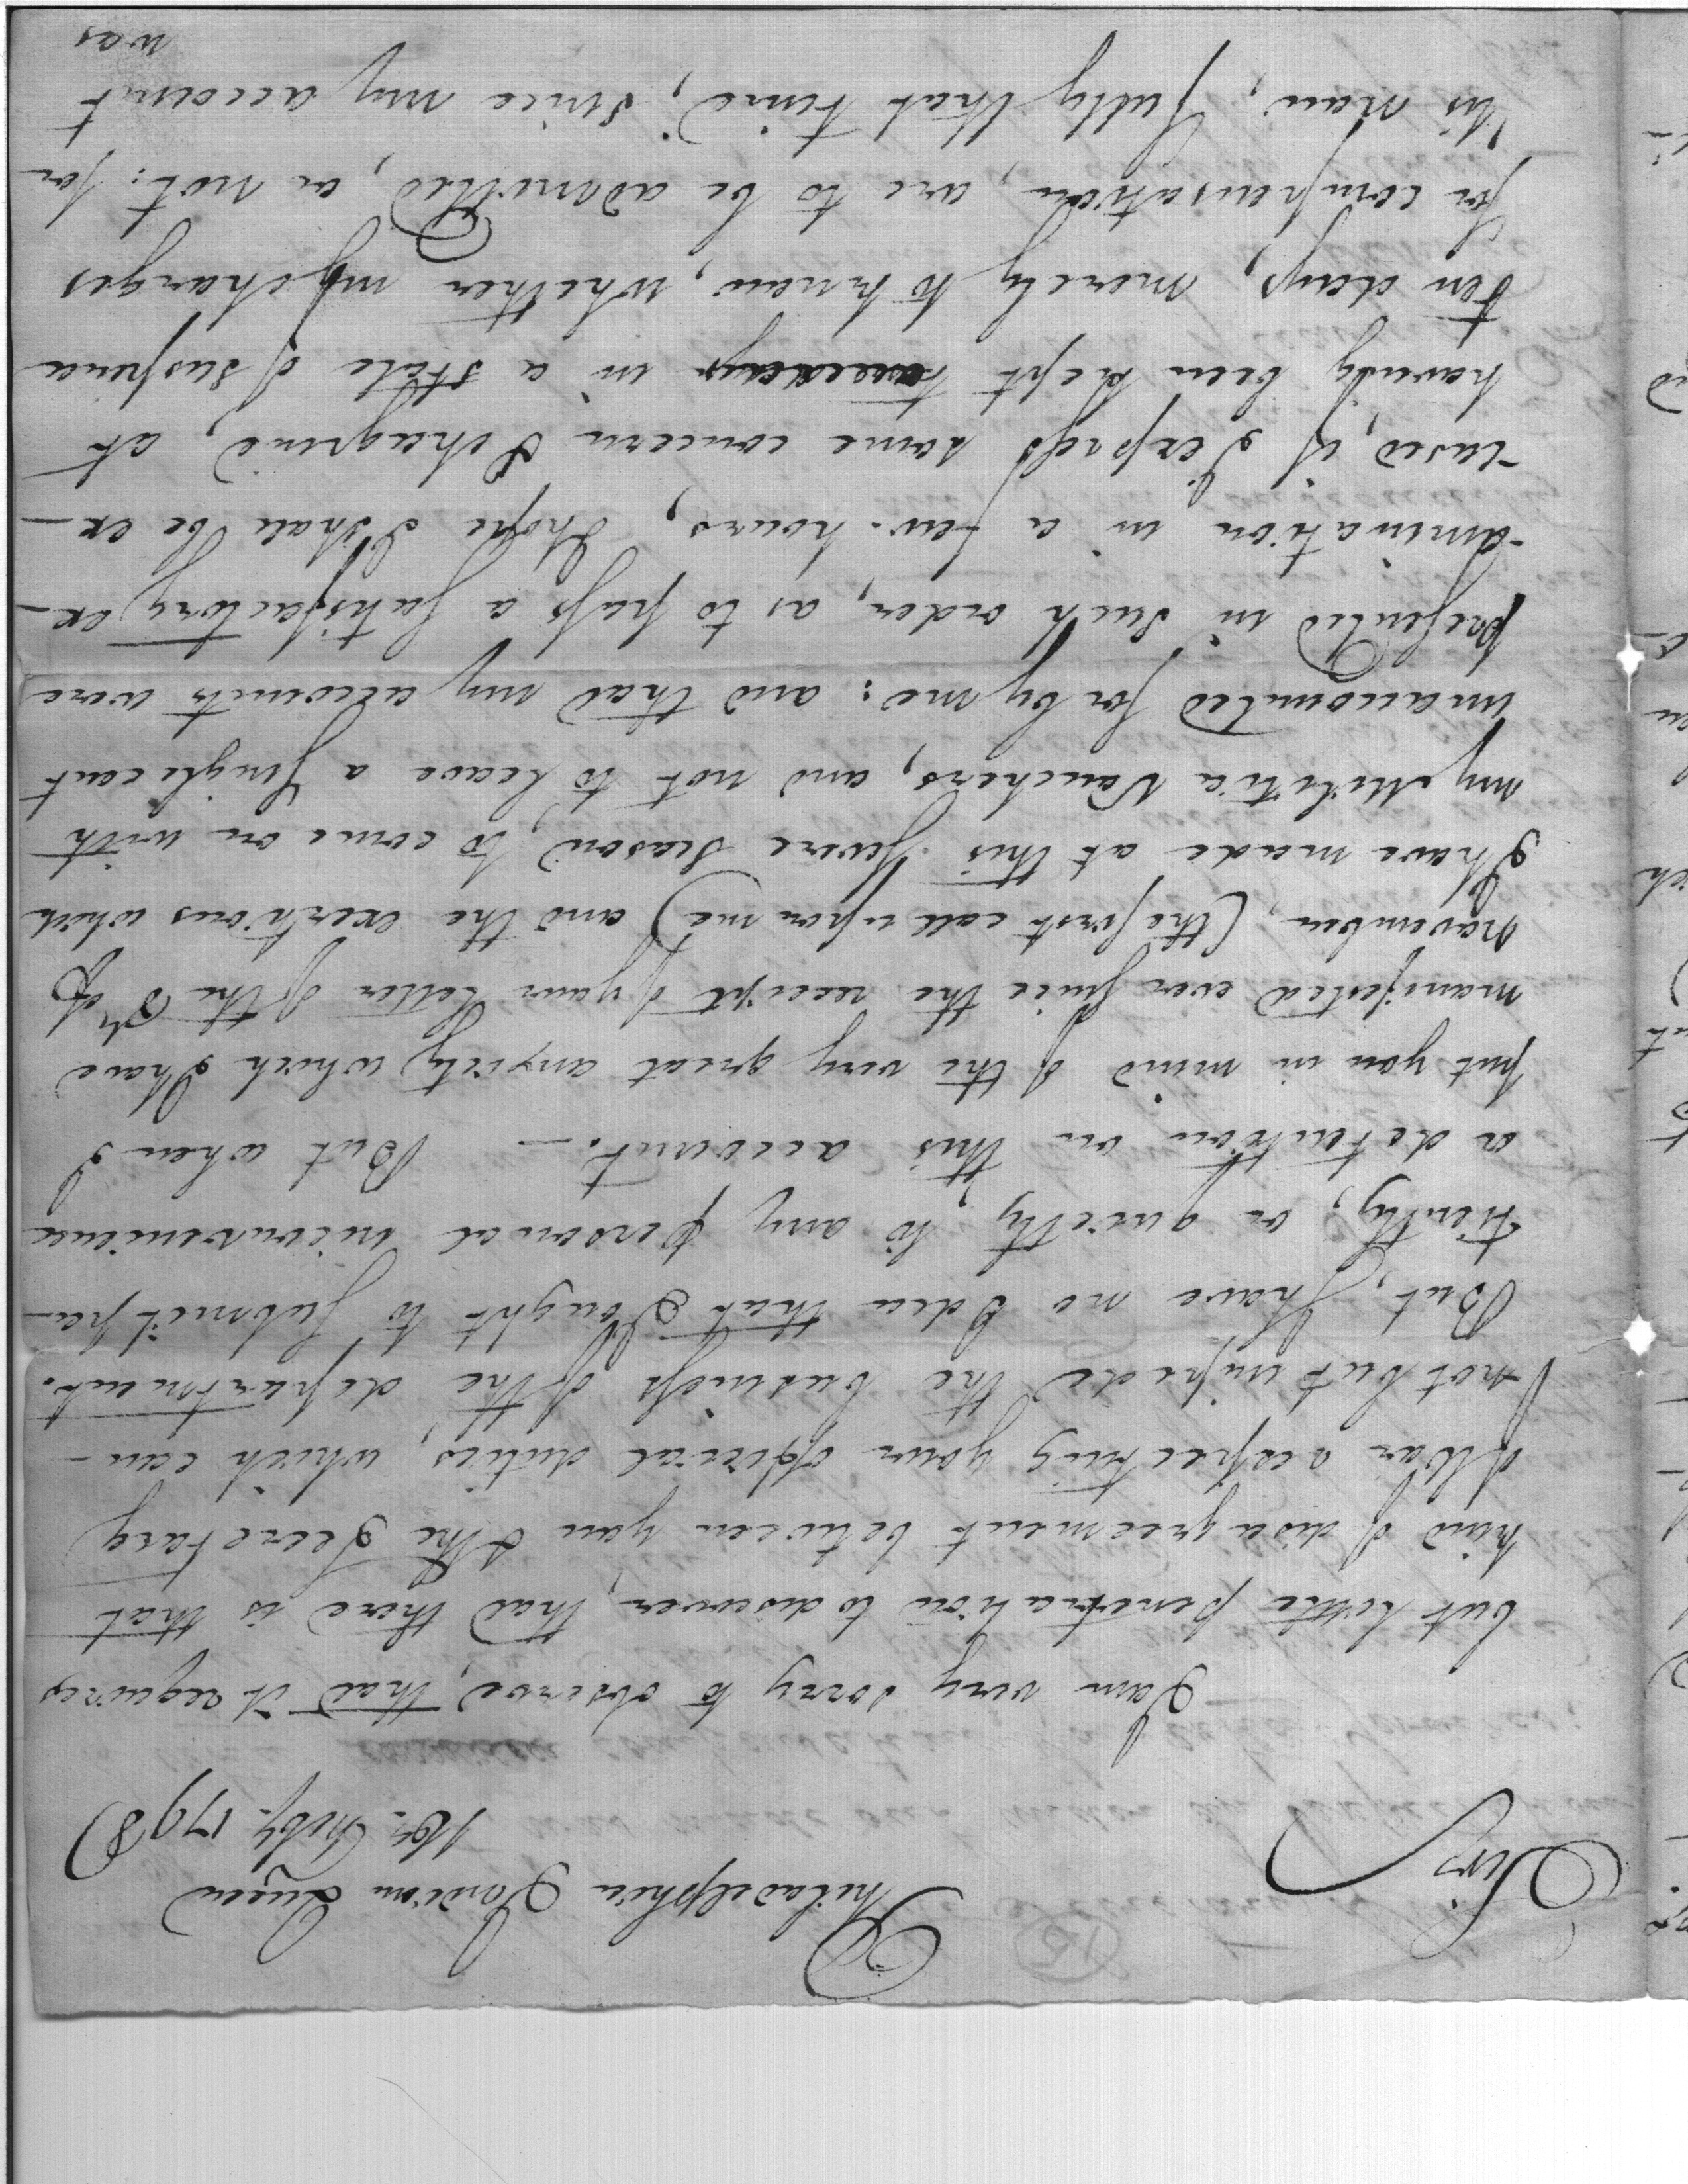 Philadelphia Indian Queen
16th. Feby. 1798
Sir,
I am very sorry to observe, that it requires
but little penetration to discover, that there is that
kind of disagreement between you & the Secretary
of War respecting your official duties, which can-
not but impede the business of the department.
But, I have no Idea that I ought to submit pa-
tiently, or quietly, to any personal inconvenience
or detention on this account. — But when I
put you in mind of the very great anxiety which I have
manifested ever since the receipt of your letter of the 3d. of
November, (the first call upon me) and the exertions which
I have made at this severe season, to come on with
my Militia Vouchers, and not to leave a single cent
unaccounted for by me: and that my accounts were
presented in such order, as to pass a satisfactory ex-
-amination in a few hours, I hope I shall be ex-
-cused, if I express some concern & chagrine, at
having been kept in a state of suspence
ten days, merely to know, whether my charges
for compensation, are to be admitted, or not: for
'tis now, fully that time, since my account
was